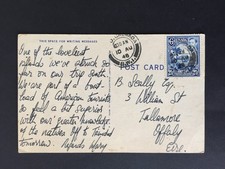 THIS SPACE FOR WRITING MESSAGES
POST CARD
One of the loveliest
islands we've struck so
far on our trip South.
We are part of a boat
load of American tourists
so feel a bit superior
with our greater knowledge
of the natives. Off to Trinidad
Tomorrow. Regards Mary
B Scally Esq.
3 William St
Tullamore
Offaly
Eire.
10 AU